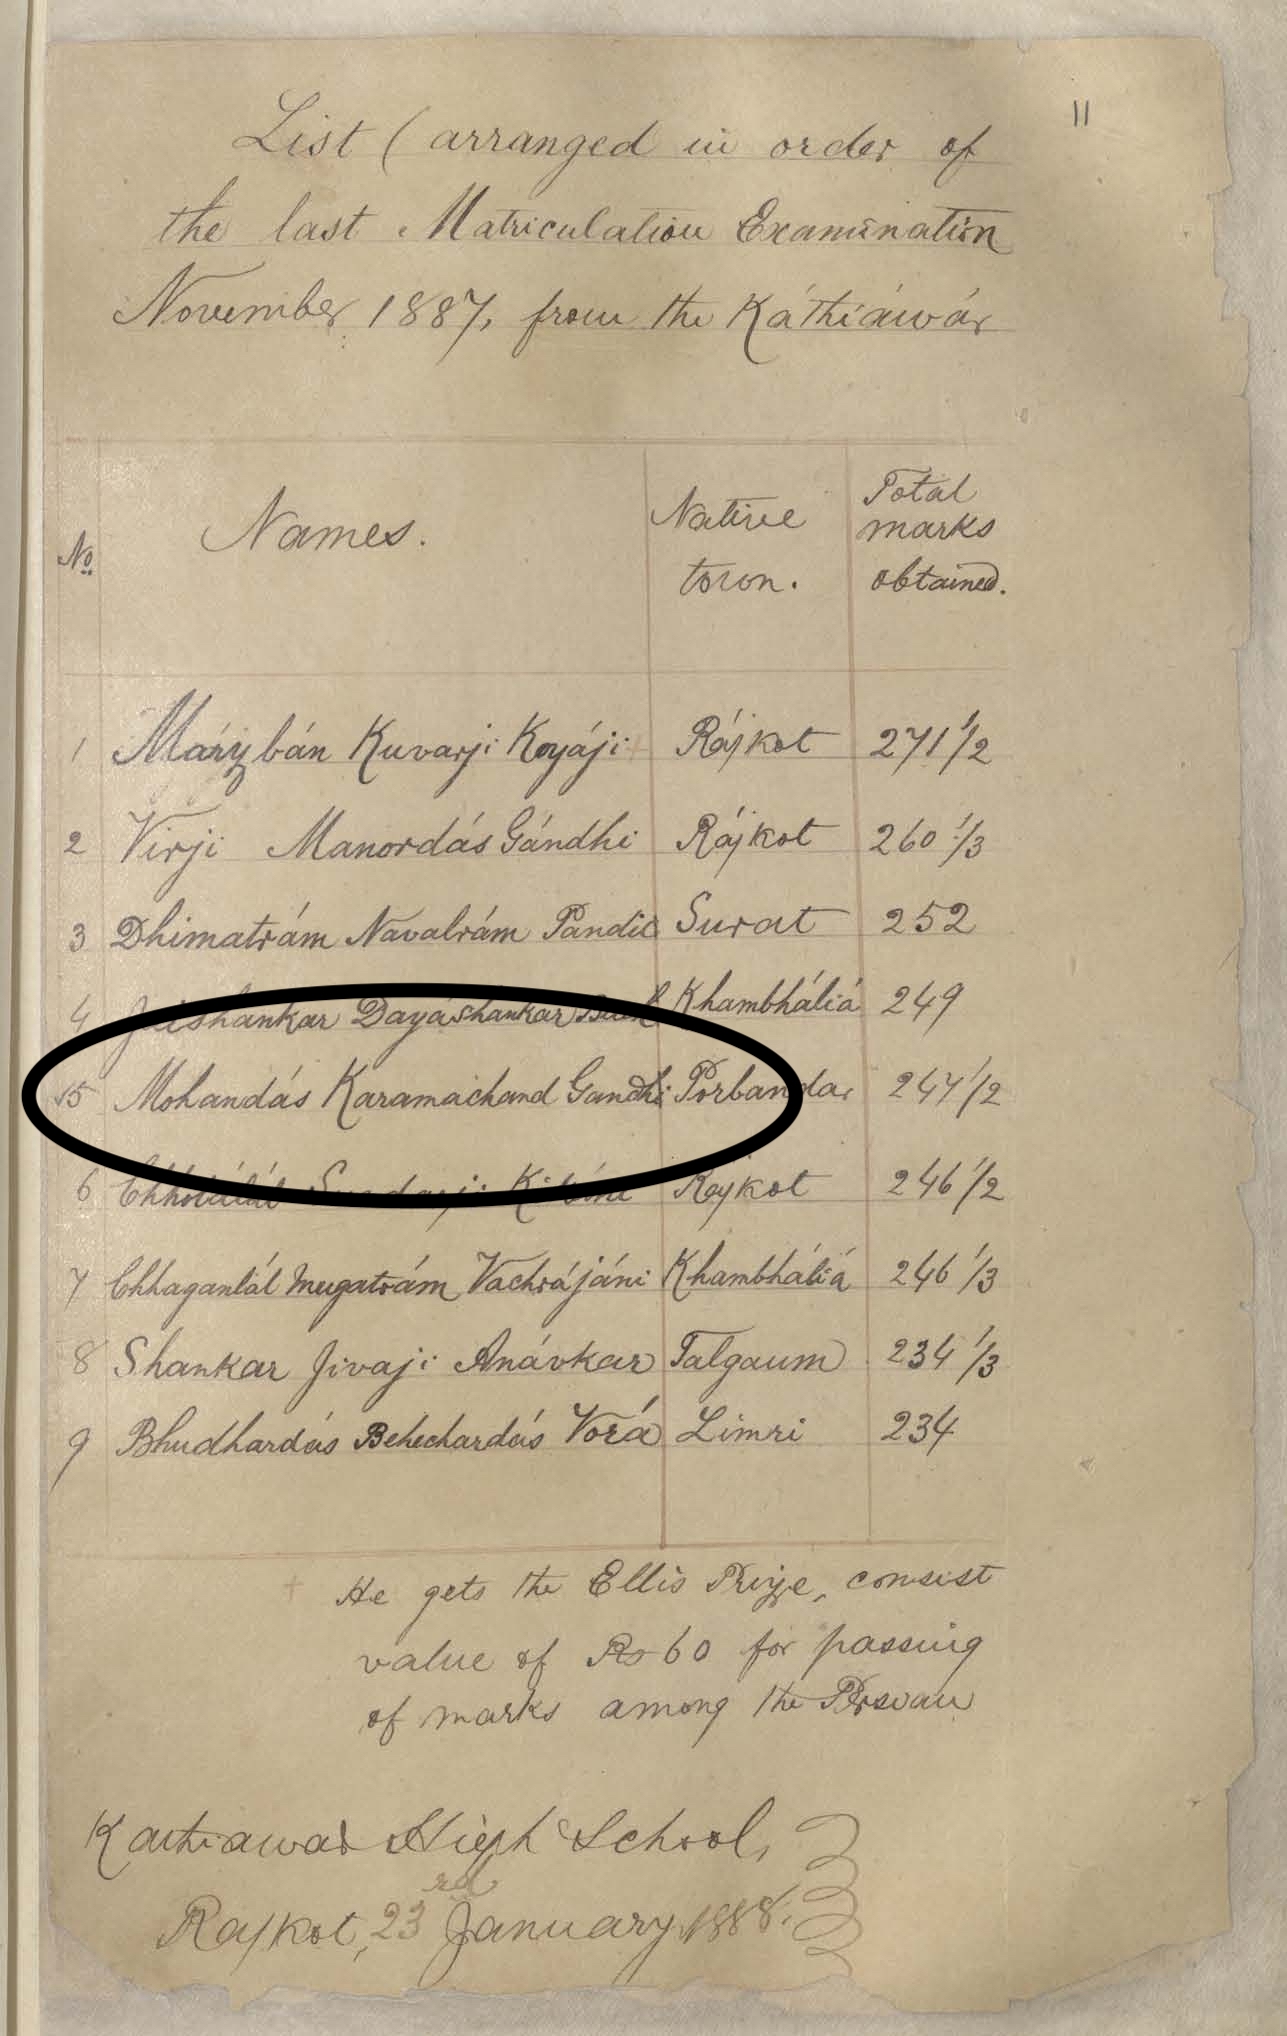 11
List (arranged in order of
the last Matriculation Examination
November 1887, from the Káthiáwár
No. Names. Native town. Total marks obtained.
1 Márzbán Kuvarji Koyáji + Rájkot 271 1/2
2 Virji Manordás Gándhi Rájkot 260 1/3
3 Dhimatrám Navalrám Pandit Surat 252
4 Dayáshankar Khambháliá 249
5 Mohandás Karamachand Gandhi Porbandar 247 1/2
6 Rajkot 246 1/2
7 Chhaganlál Mugatrám Vachrájáni Khambháliá 246 1/3
8 Shankar Jivaji Anávkar Talgaum 234 1/3
9 Bhudhardás Behechardás Vorá Limri 234
+ He gets the Ellis Prize, consist
value of Rs 60 for passing
of marks among the Persian
Kathiawad High School,
Rajkot, 23rd January, 1888.